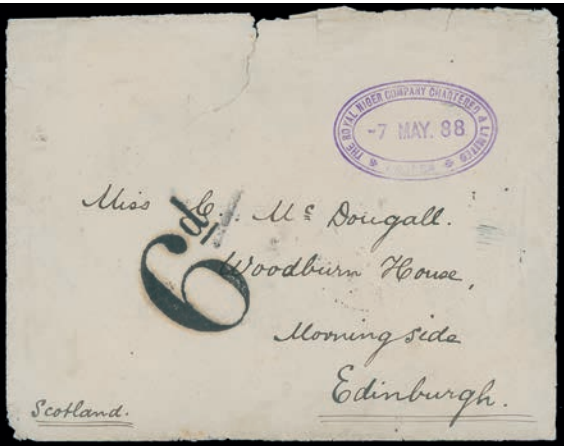 THE ROYAL NIGER COMPANY CHARTERED & LIMITED
-7 MAY. 88
6d
Miss C. Mc Dougall.
Woodburn House,
Morningside
Edinburgh.
Scotland.